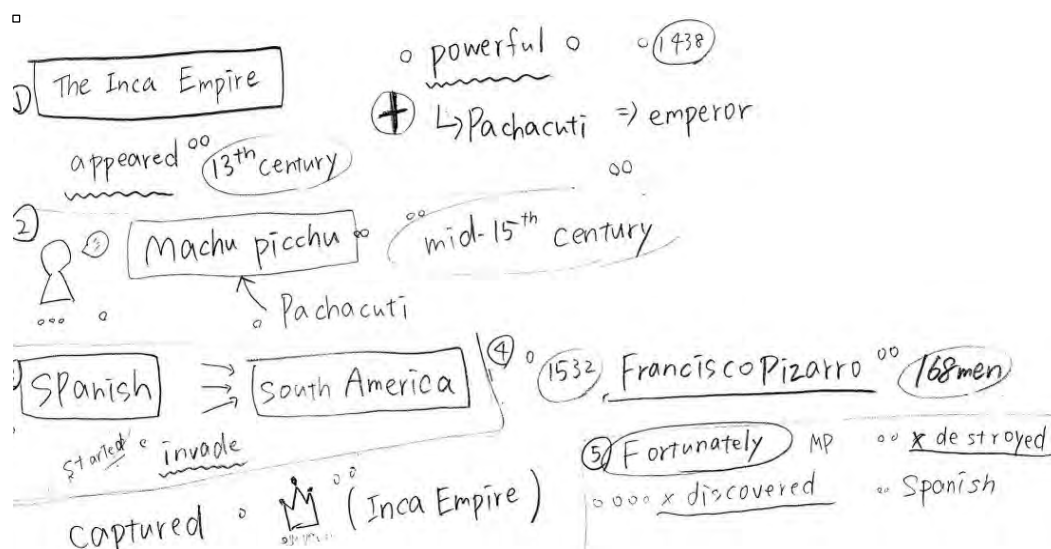 ① The Inca Empire
appeared 13th century
powerful 1438
+ ↳Pachacuti ⇒ emperor
② Machu picchu mid-15th century
Pachacuti
Spanish South America
started invade
captured (Inca Empire)
④ 1532 Francisco Pizarro 168men
⑤ Fortunately MP x destroyed
x discovered Spanish